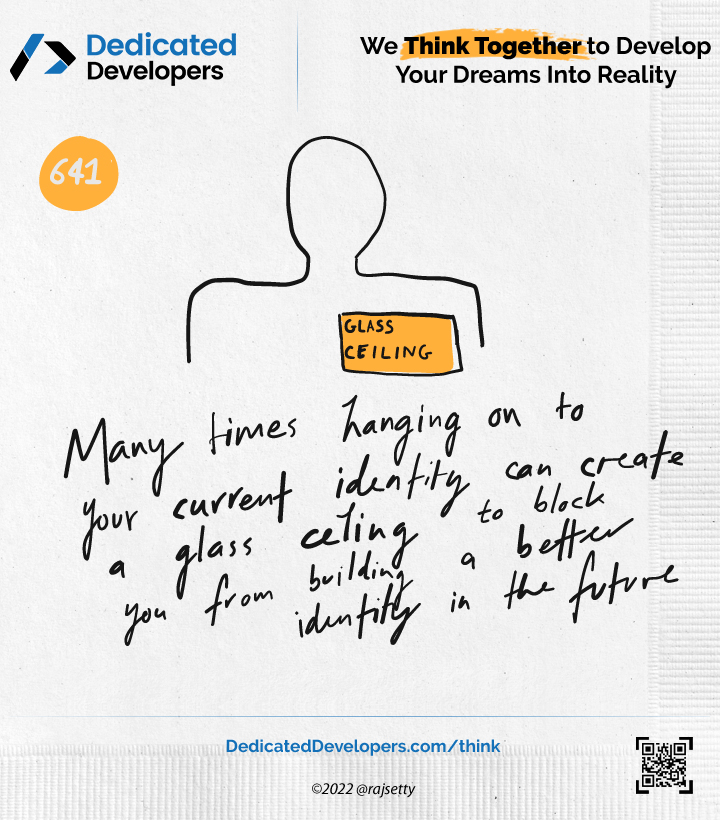 Dedicated
Developers
We Think Together to Develop
Your Dreams Into Reality
641
GLASS
CEILING
Many times hanging on to
your current identity can create
a glass celing to block
you from building a better
identity in the future
DedicatedDevelopers.com/think
©2022 @rajsetty